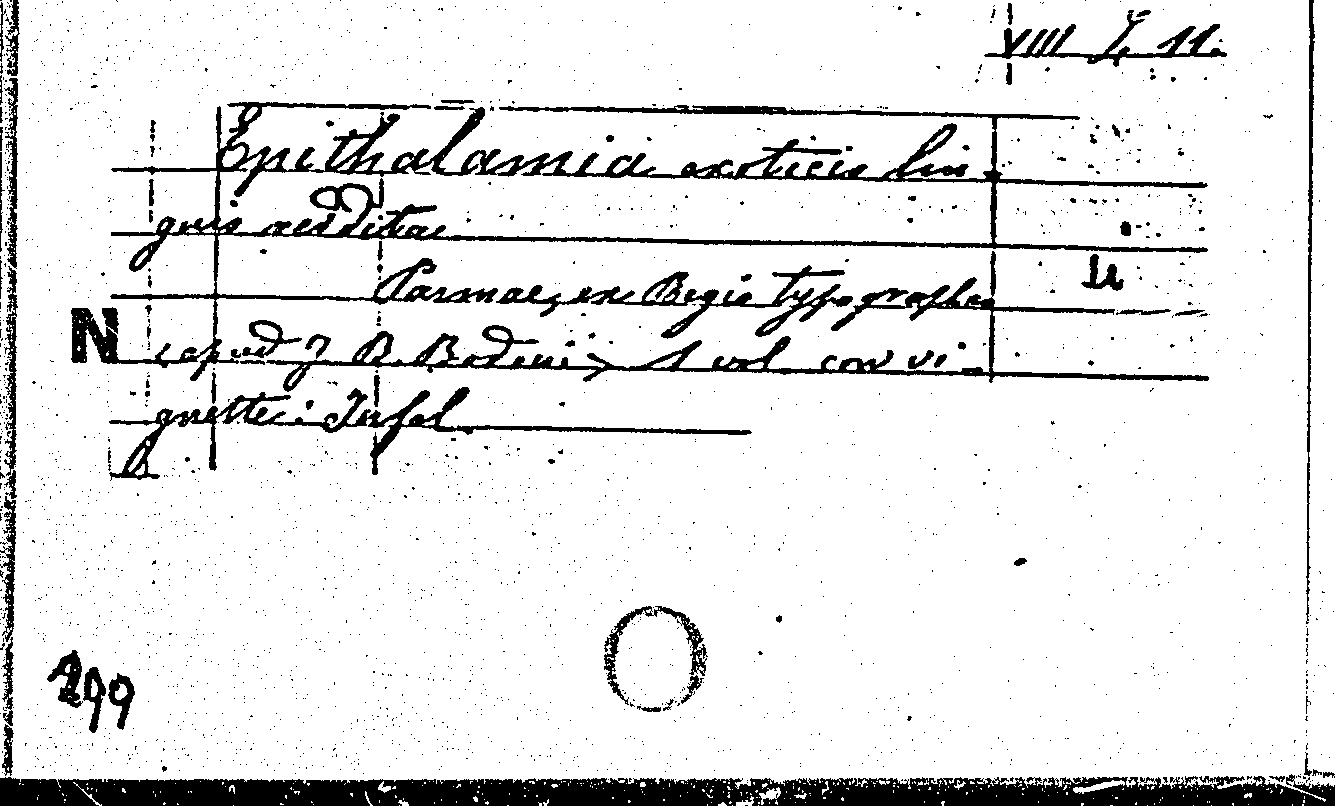 VIIII Z. 11.
Epithalamia exoticis lin-
guis reddita
Parmae, ex Regio typographeo
N
(apud J. B. Bodoni) 1 vol. con vi-
gnette: In fol.
B
299